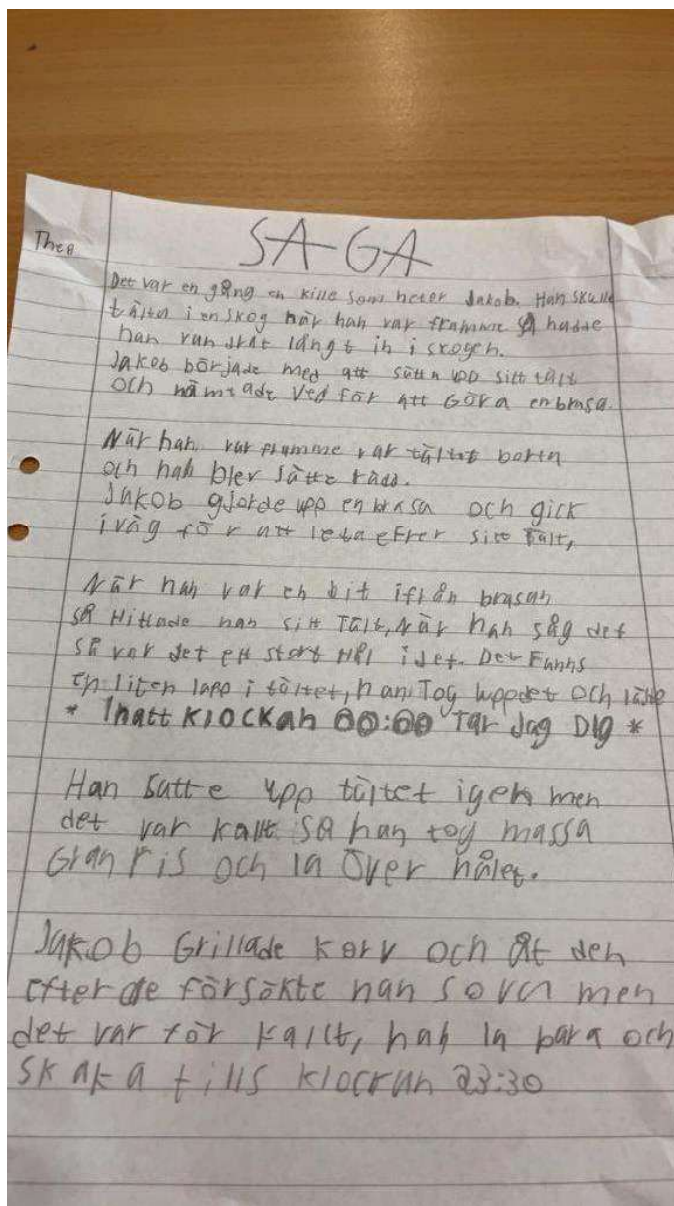 Thea
SAGA
Det var en gång en kille som heter Jakob. Han skulle
tälta i en skog när han var framme så hadde
han vandrat långt in i skogen.
Jakob började med att sätta upp sitt tält
och hämtade ved för att Göra en brasa.
När han var framme var tältet borta
och han blev jätte rädd.
Jakob gjorde upp en brasa och gick
iväg för att leta efter sitt Tält,
När han var en bit ifrån brasan
så Hittade han sitt Tält, När han såg det
så var det ett stort Hål i det. Det Fanns
en liten lapp i tältet, han Tog uppdet och läste
* Inatt Klockan 00:00 Tar Jag Dig *
Han Satte upp tältet igen men
det var kallt så han tog massa
Gran ris och la över hålet.
Jakob Grillade Korv och åt den
efter de försökte han sova men
det var för kallt, han la bara och
skaka tills klockan 23:30